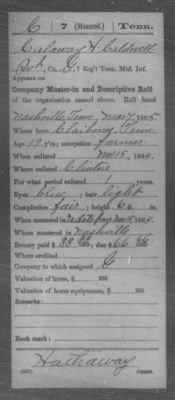 C | 7 (Mounted.) | Tenn.
Calaway H Caldwell
Pvt, Co. G, 7 Reg't Tenn. Mtd. Inf.
Appears on
Company Muster-in and Descriptive Roll
of the organization named above. Roll dated
Nashville, Tenn, Mar 7, 1865
Where born Claiborne, Tenn
Age 19 y'rs; occupation farmer
When enlisted Nov 15, 1864
Where enlisted Clinton
For what period enlisted 1 years.
Eyes blue; hair light
Complexion fair; height 6 ft. in.
When mustered in
Where mustered in Nashville
Bounty paid $ 33 ; due $ 66
Where credited
Company to which assigned G
Valuation of horse, $ 100
Valuation of horse equipments, $ 100
Remarks:
Book mark:
Hathaway
Copyist.